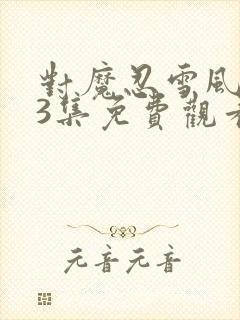 對魔忍雪風
3集免費觀看
元音元音